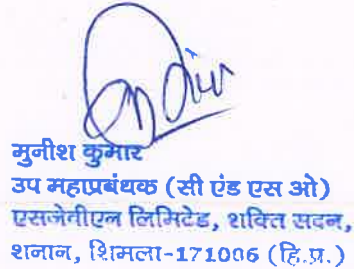 मुनीश कुमार
उप महाप्रबंधक (सी एंड एस ओ)
एसजेवीएन लिमिटेड, शक्ति सदन,
शनान, शिमला-171006 (हि.प्र.)